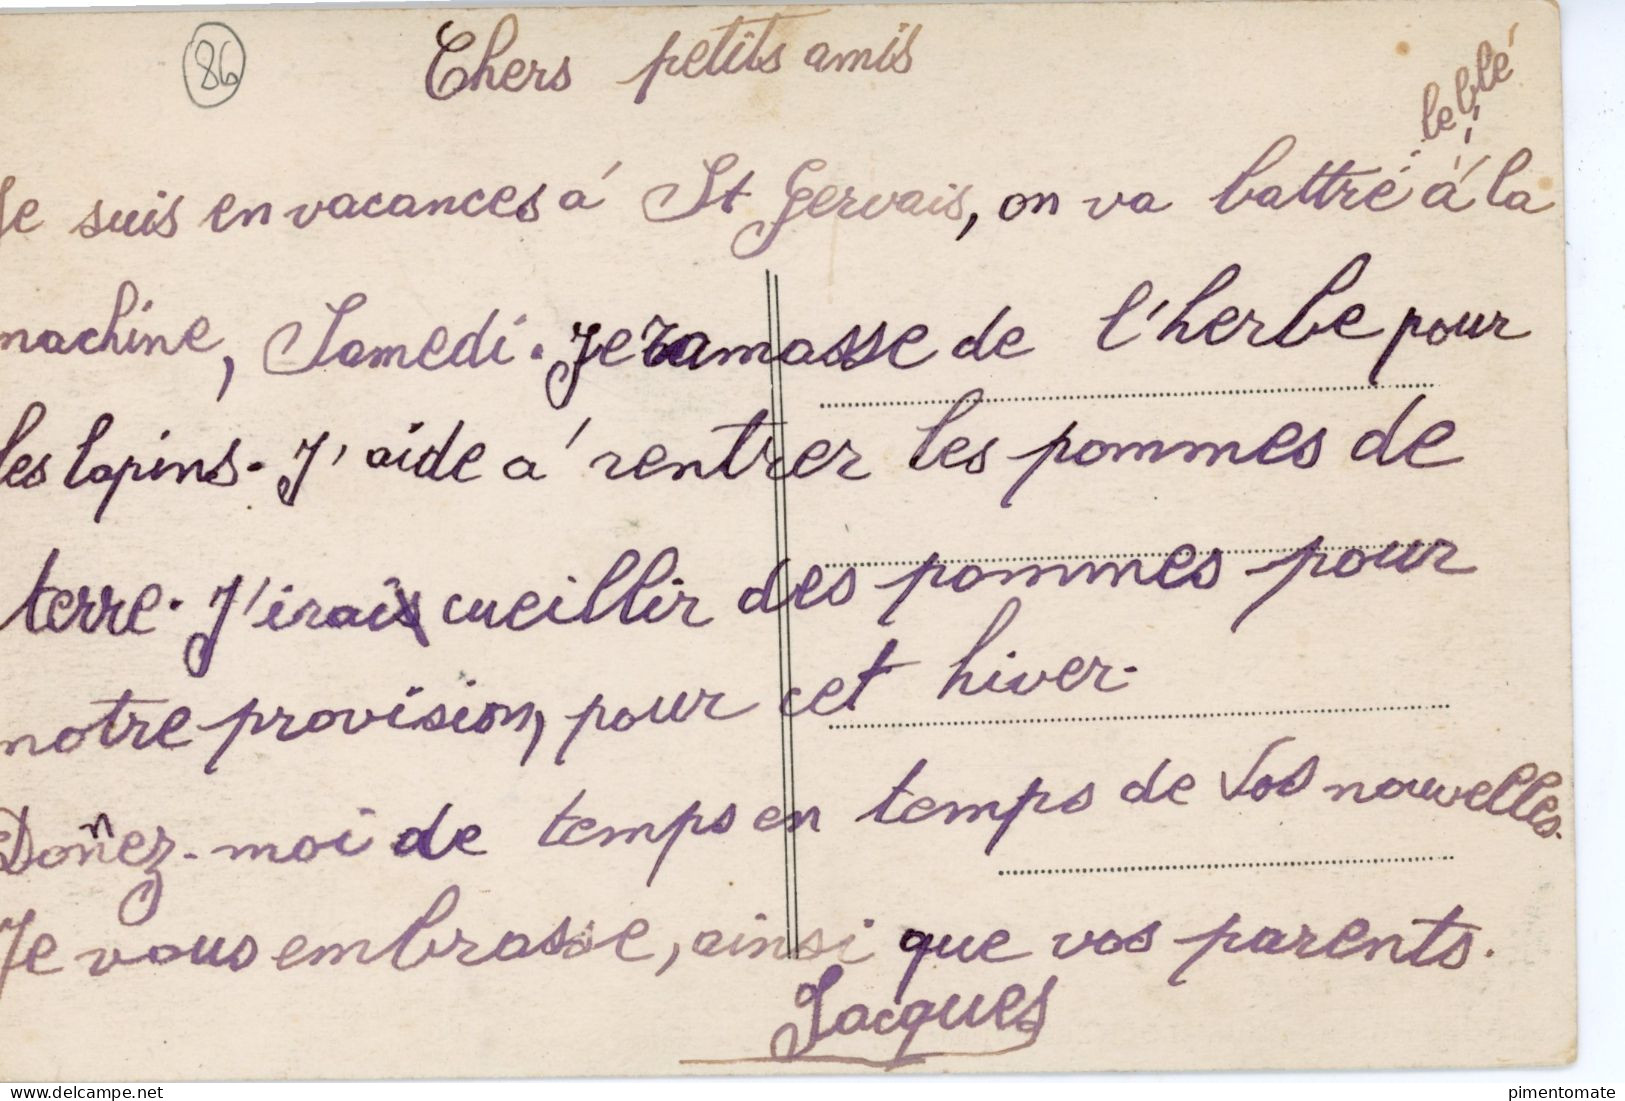 86
Chers petits amis
le blé
Je suis en vacances à St Gervais, on va battre à la
machine, Samedi. Je ramasse de l'herbe pour
les lapins. J'aide à rentrer les pommes de
terre. J'irai cueillir des pommes pour
notre provision, pour cet hiver.
Donnez-moi de temps en temps de vos nouvelles.
Je vous embrasse, ainsi que vos parents.
Jacques
https://www.delcampe.net
pimentomate